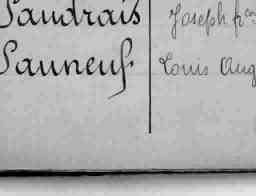 Vaudrais Joseph fr
Vauneuf Louis Aug